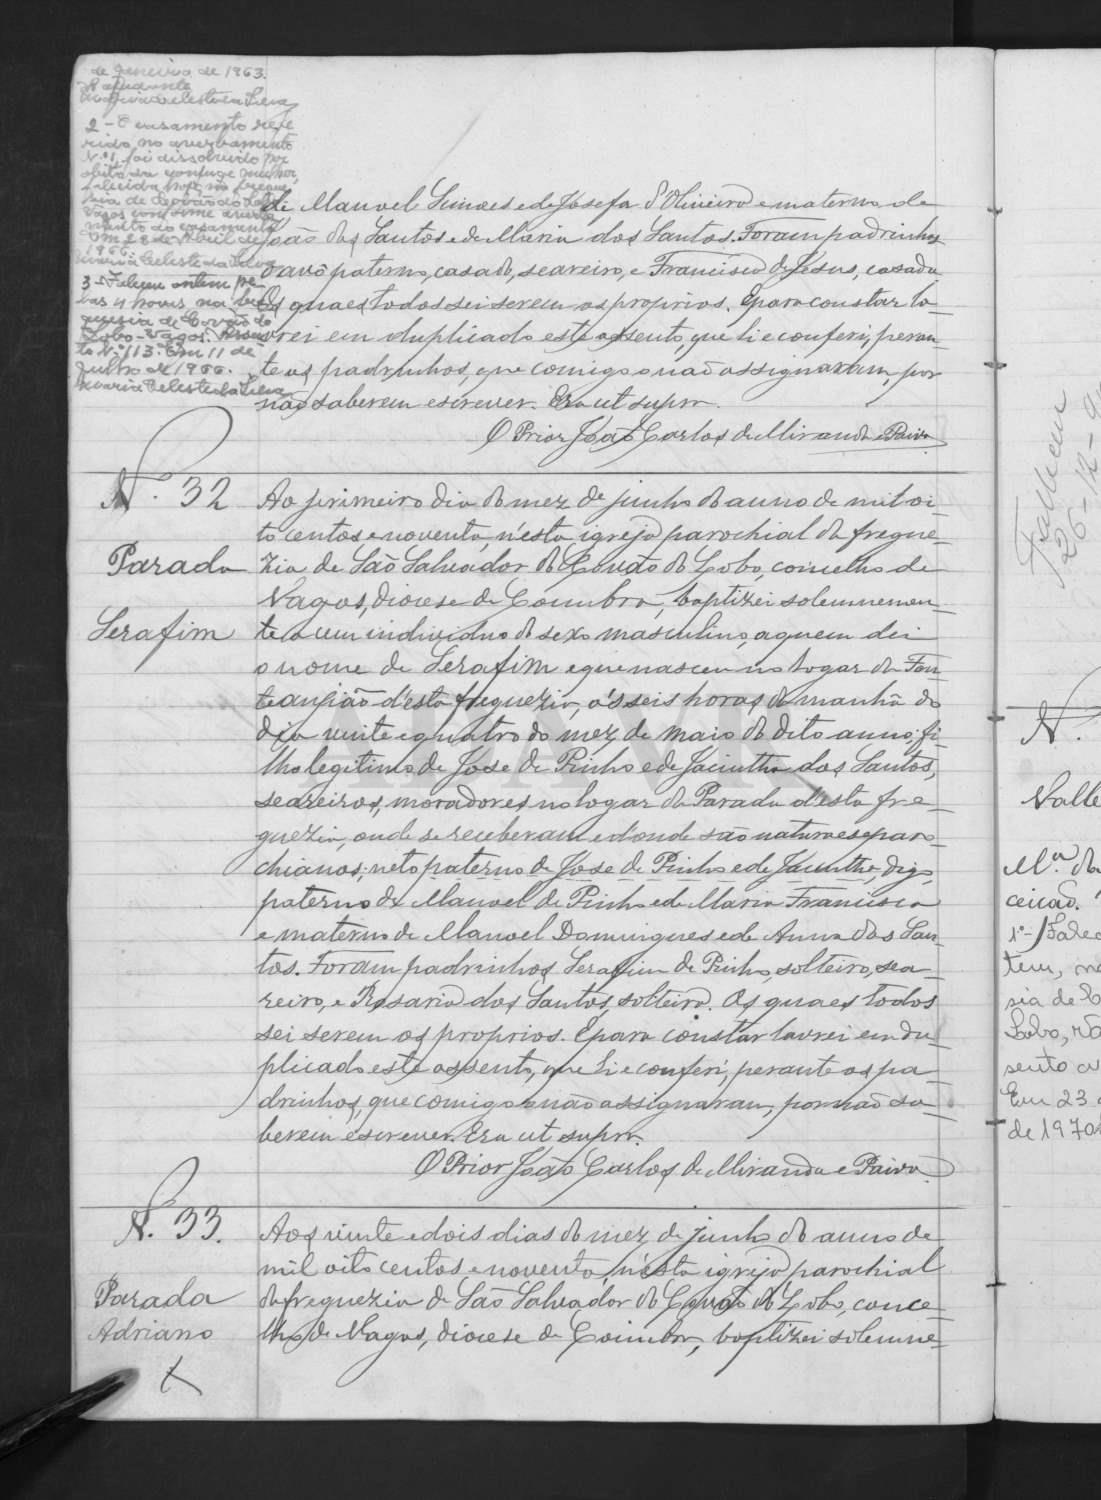 de Janeiro de 1963.
A ajudante
Maria Celeste da Silva
2 - O casamento refe
rido no averbamento
N.º 1, foi dissolvido por
obito da conjuge mulher,
falecida hoje, na fregue
sia de Covão do Lobo
Vagos conforme averba
mento do casamento
Em 28 de Abril de
1966.
Maria Celeste da Silva
3 - Faleceu ontem pe
las 4 horas na fre
guesia de Covão do
Lobo - Vagos. Assen
to N.º 113. Em 11 de
de 1966.
Maria Celeste da Silva
de Manoel Simoes e de Josefa d'Oliveira e materno de
João dos Santos e de Maria dos Santos. Foram padrinhos
o avô paterno, casado, seareiro, e Francisca de Jesus, casada
Os quaes todos sei serem os proprios. E para constar la-
vrei em duplicado este assento, que li e conferi, peran-
te os padrinhos, que comigo não assignaram, por
não saberem escrever. Era ut supra.
O Prior João Carlos de Miranda e Paiva
N. 32
Parada
Serafim
Ao primeiro dia do mez de junho do anno de mil oi-
to centos e noventa, n'esta igreja parochial da fregue-
zia de São Salvador do Covão do Lobo, concelho de
Vagos, diocese de Coimbra, baptizei solemnemen-
te a um individuo do sexo masculino, a quem dei
o nome de Serafim e que nasceu no logar da Fon-
te anjião d'esta freguezia, ás seis horas da manhã do
dia vinte e quatro do mez de maio do dito anno, fi-
lho legitimo de Jose de Pinho e de Jacintha dos Santos,
seareiros, moradores no logar da Parada d'esta fre-
guezia, onde se receberam e d'onde são naturaes e paro-
chianos; neto paterno de Jose de Pinho e de Jacintha, digo,
paterno de Manoel de Pinho e de Maria Francisca
e materno de Manoel Domingues e de Anna dos San-
tos. Foram padrinhos Serafim de Pinho, solteiro, sea-
reiro, e Rosaria dos Santos, solteira. Os quaes todos
sei serem os proprios. E para constar lavrei em du-
plicado este assento, que li e conferi, perante os pa-
drinhos, que comigo não assignaram, por não sa-
berem escrever. Era ut supra.
O Prior João Carlos de Miranda e Paiva
N. 33.
Parada
Adriano
X
Aos vinte e dois dias do mez de junho do anno de
mil oito centos e noventa, n'esta igreja parochial
da freguezia de São Salvador do Covão do Lobo, conce-
lho de Vagos, diocese de Coimbra, baptizei solemne-
Faleceu
26-12-9
N.
Valle
M.ª da
ceicão.
1º - Falec
tem, na
sia de C
Lobo, Va
sento
Em 23
de 1970